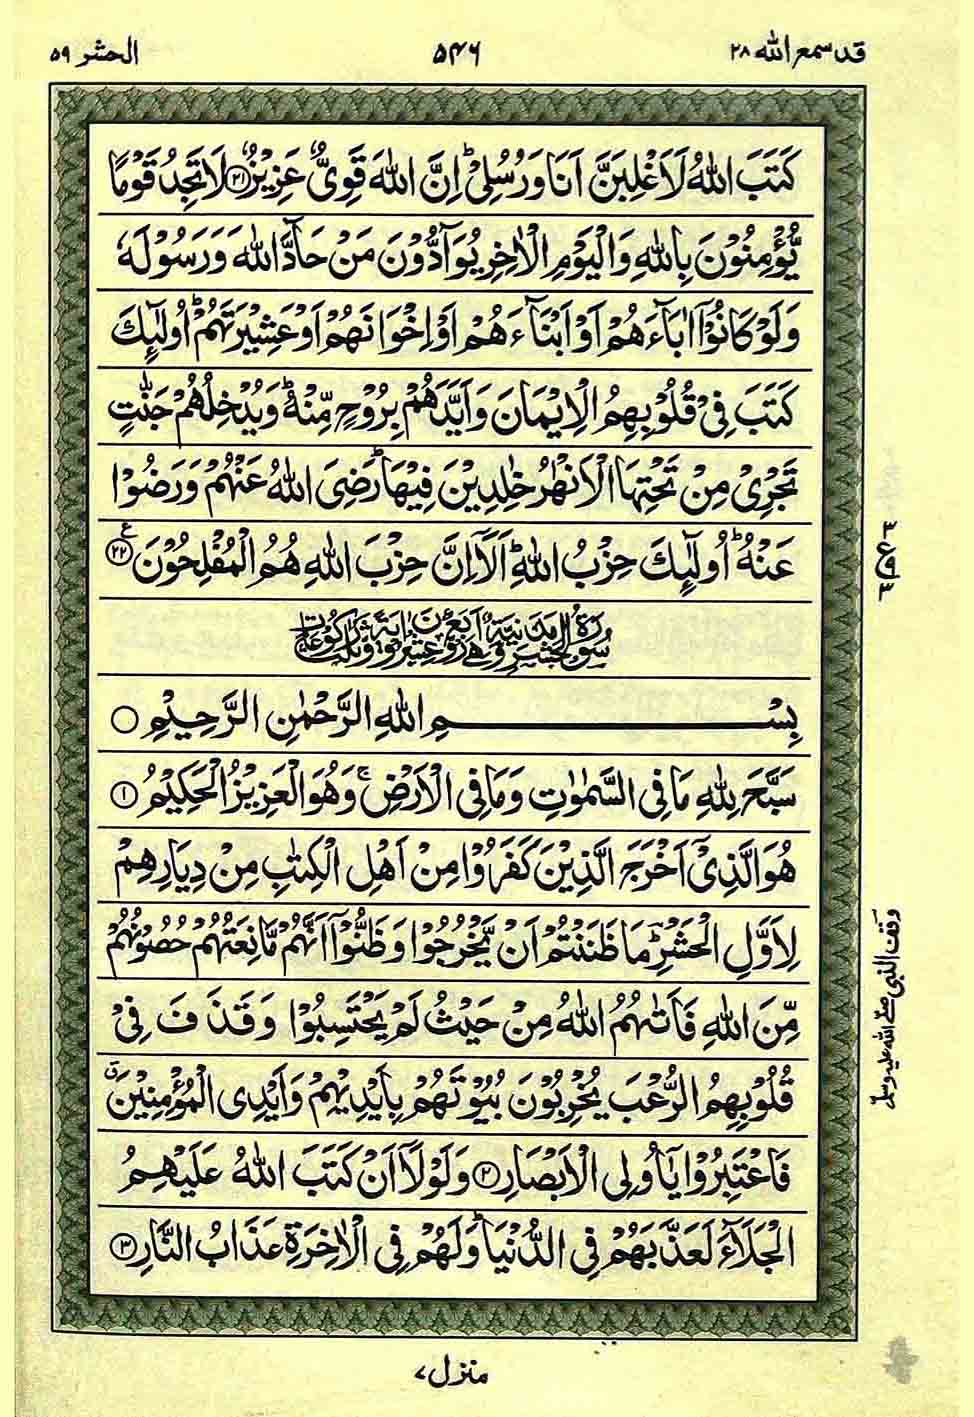 قد سمع الله ٢٨
٥٤٦
الحشر ٥٩
كَتَبَ اللّٰهُ لَاَغْلِبَنَّ اَنَا وَرُسُلِیْ ؕ اِنَّ اللّٰهَ قَوِیٌّ عَزِیْزٌ ﴿۲۱﴾ لَا تَجِدُ قَوْمًا
یُّؤْمِنُوْنَ بِاللّٰهِ وَالْیَوْمِ الْاٰخِرِ یُوَآدُّوْنَ مَنْ حَآدَّ اللّٰهَ وَرَسُوْلَهٗ
وَلَوْ كَانُوْۤا اٰبَآءَهُمْ اَوْ اَبْنَآءَهُمْ اَوْ اِخْوَانَهُمْ اَوْ عَشِیْرَتَهُمْ ؕ اُولٰٓئِكَ
كَتَبَ فِیْ قُلُوْبِهِمُ الْاِیْمَانَ وَاَیَّدَهُمْ بِرُوْحٍ مِّنْهُ ؕ وَیُدْخِلُهُمْ جَنّٰتٍ
تَجْرِیْ مِنْ تَحْتِهَا الْاَنْهٰرُ خٰلِدِیْنَ فِیْهَا ؕ رَضِیَ اللّٰهُ عَنْهُمْ وَرَضُوْا
عَنْهُ ؕ اُولٰٓئِكَ حِزْبُ اللّٰهِ ؕ اَلَاۤ اِنَّ حِزْبَ اللّٰهِ هُمُ الْمُفْلِحُوْنَ ﴿۲۲﴾ ع
بِسْمِ اللّٰهِ الرَّحْمٰنِ الرَّحِیْمِ
سَبَّحَ لِلّٰهِ مَا فِی السَّمٰوٰتِ وَمَا فِی الْاَرْضِ ۚ وَهُوَ الْعَزِیْزُ الْحَكِیْمُ ﴿۱﴾
هُوَ الَّذِیْۤ اَخْرَجَ الَّذِیْنَ كَفَرُوْا مِنْ اَهْلِ الْكِتٰبِ مِنْ دِیَارِهِمْ
لِاَوَّلِ الْحَشْرِ ؔ مَا ظَنَنْتُمْ اَنْ یَّخْرُجُوْا وَظَنُّوْۤا اَنَّهُمْ مَّانِعَتُهُمْ حُصُوْنُهُمْ
مِّنَ اللّٰهِ فَاَتٰىهُمُ اللّٰهُ مِنْ حَیْثُ لَمْ یَحْتَسِبُوْا وَقَذَفَ فِیْ
قُلُوْبِهِمُ الرُّعْبَ یُخْرِبُوْنَ بُیُوْتَهُمْ بِاَیْدِیْهِمْ وَاَیْدِی الْمُؤْمِنِیْنَ ۗ
فَاعْتَبِرُوْا یٰۤاُولِی الْاَبْصَارِ ﴿۲﴾ وَلَوْلَاۤ اَنْ كَتَبَ اللّٰهُ عَلَیْهِمُ
الْجَلَآءَ لَعَذَّبَهُمْ فِی الدُّنْیَا ؕ وَلَهُمْ فِی الْاٰخِرَةِ عَذَابُ النَّارِ ﴿۳﴾
٣ ع ٣
وقف النبی صلی الله علیه وسلم
منزل ٧